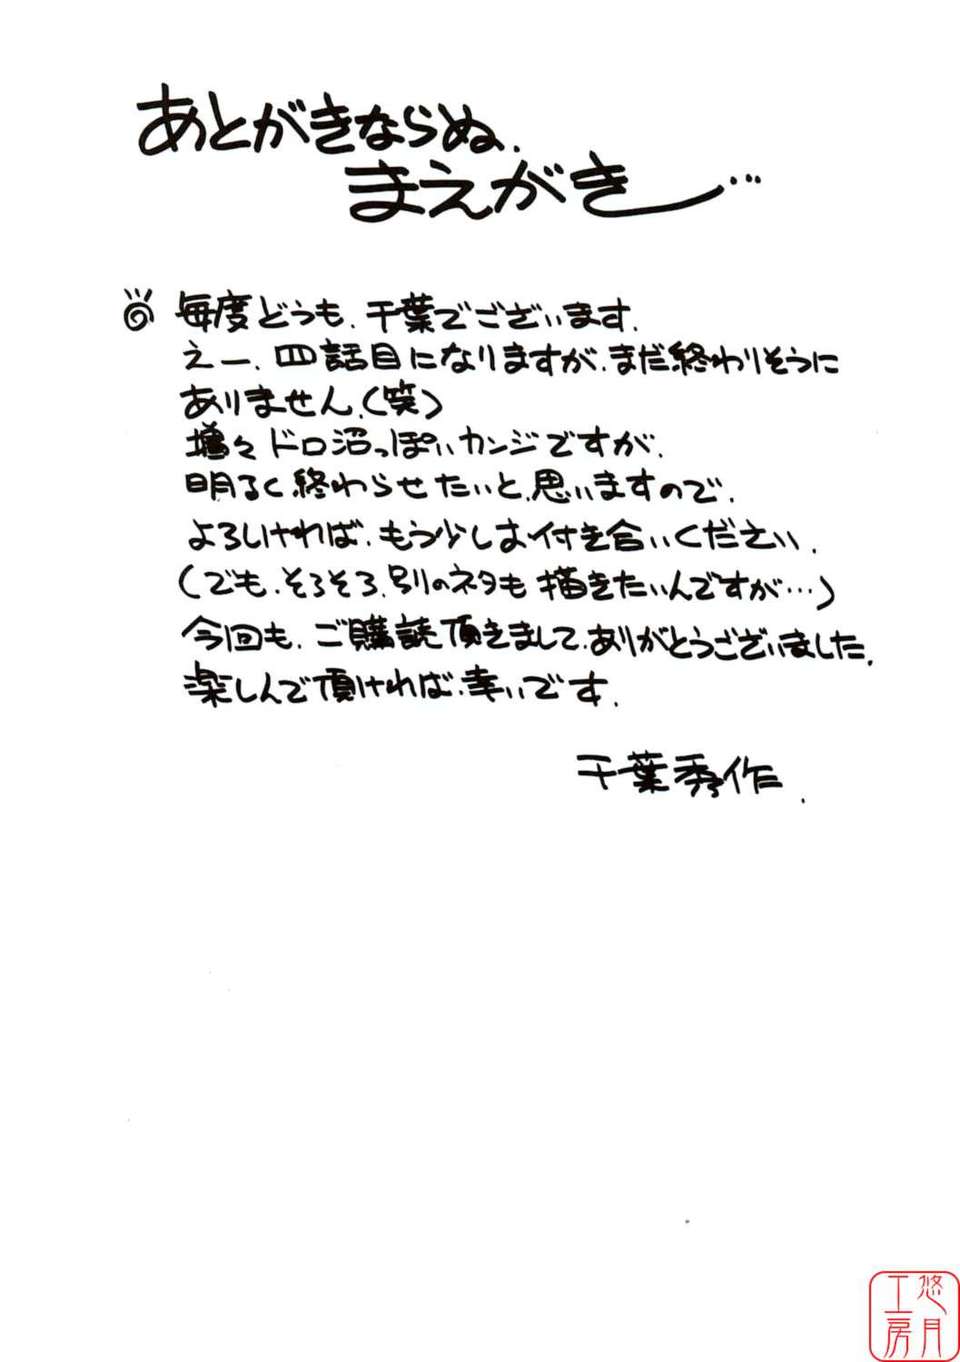 あとがきならぬ、
まえがき…
毎度どうも、千葉でございます。
えー、四話目になりますが、まだ終わりそうに
ありません、(笑)
増々ドロ沼っぽいカンジですが、
明るく終わらせたいと、思いますので、
よろしければ、もう少しお付き合いください。
(でも、そろそろ、別のネタも描きたいんですが…)
今回も、ご購読頂きまして、ありがとうございました。
楽しんで頂ければ、幸いです。
千葉秀作.
悠月
工房